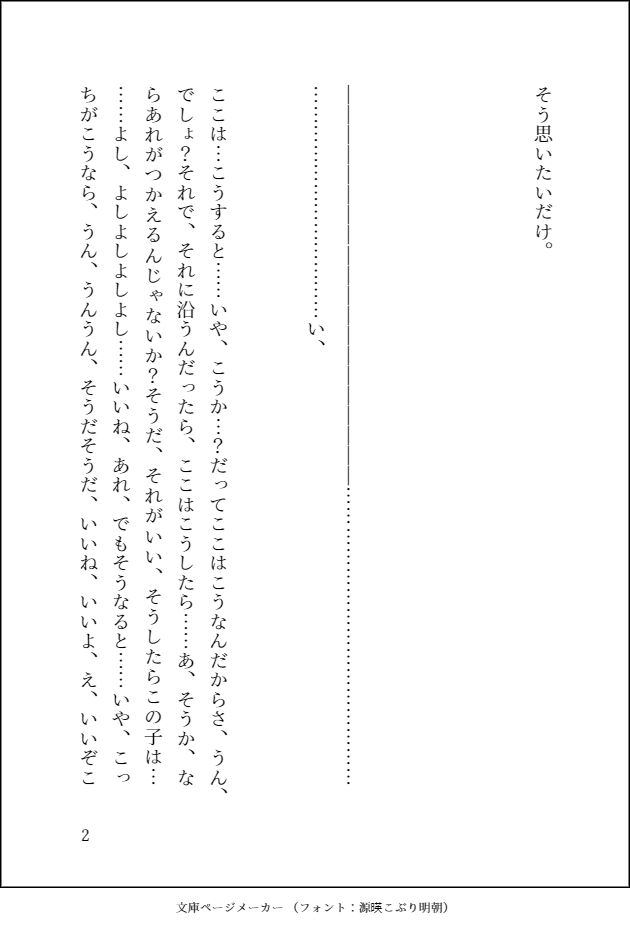 そう思いたいだけ。
――――――――――――――――――――……………………………………………
………………………………い、
ここは…こうすると……いや、こうか…？だってここはこうなんだからさ、うん、
でしょ？それで、それに沿うんだったら、ここはこうしたら……あ、そうか、な
らあれがつかえるんじゃないか？そうだ、それがいい、そうしたらこの子は…
……よし、よしよしよしよし……いいね、あれ、でもそうなると……いや、こっ
ちがこうなら、うん、うんうん、そうだそうだ、いいね、いいよ、え、いいぞこ
2
文庫ページメーカー （フォント：源暎こぶり明朝）